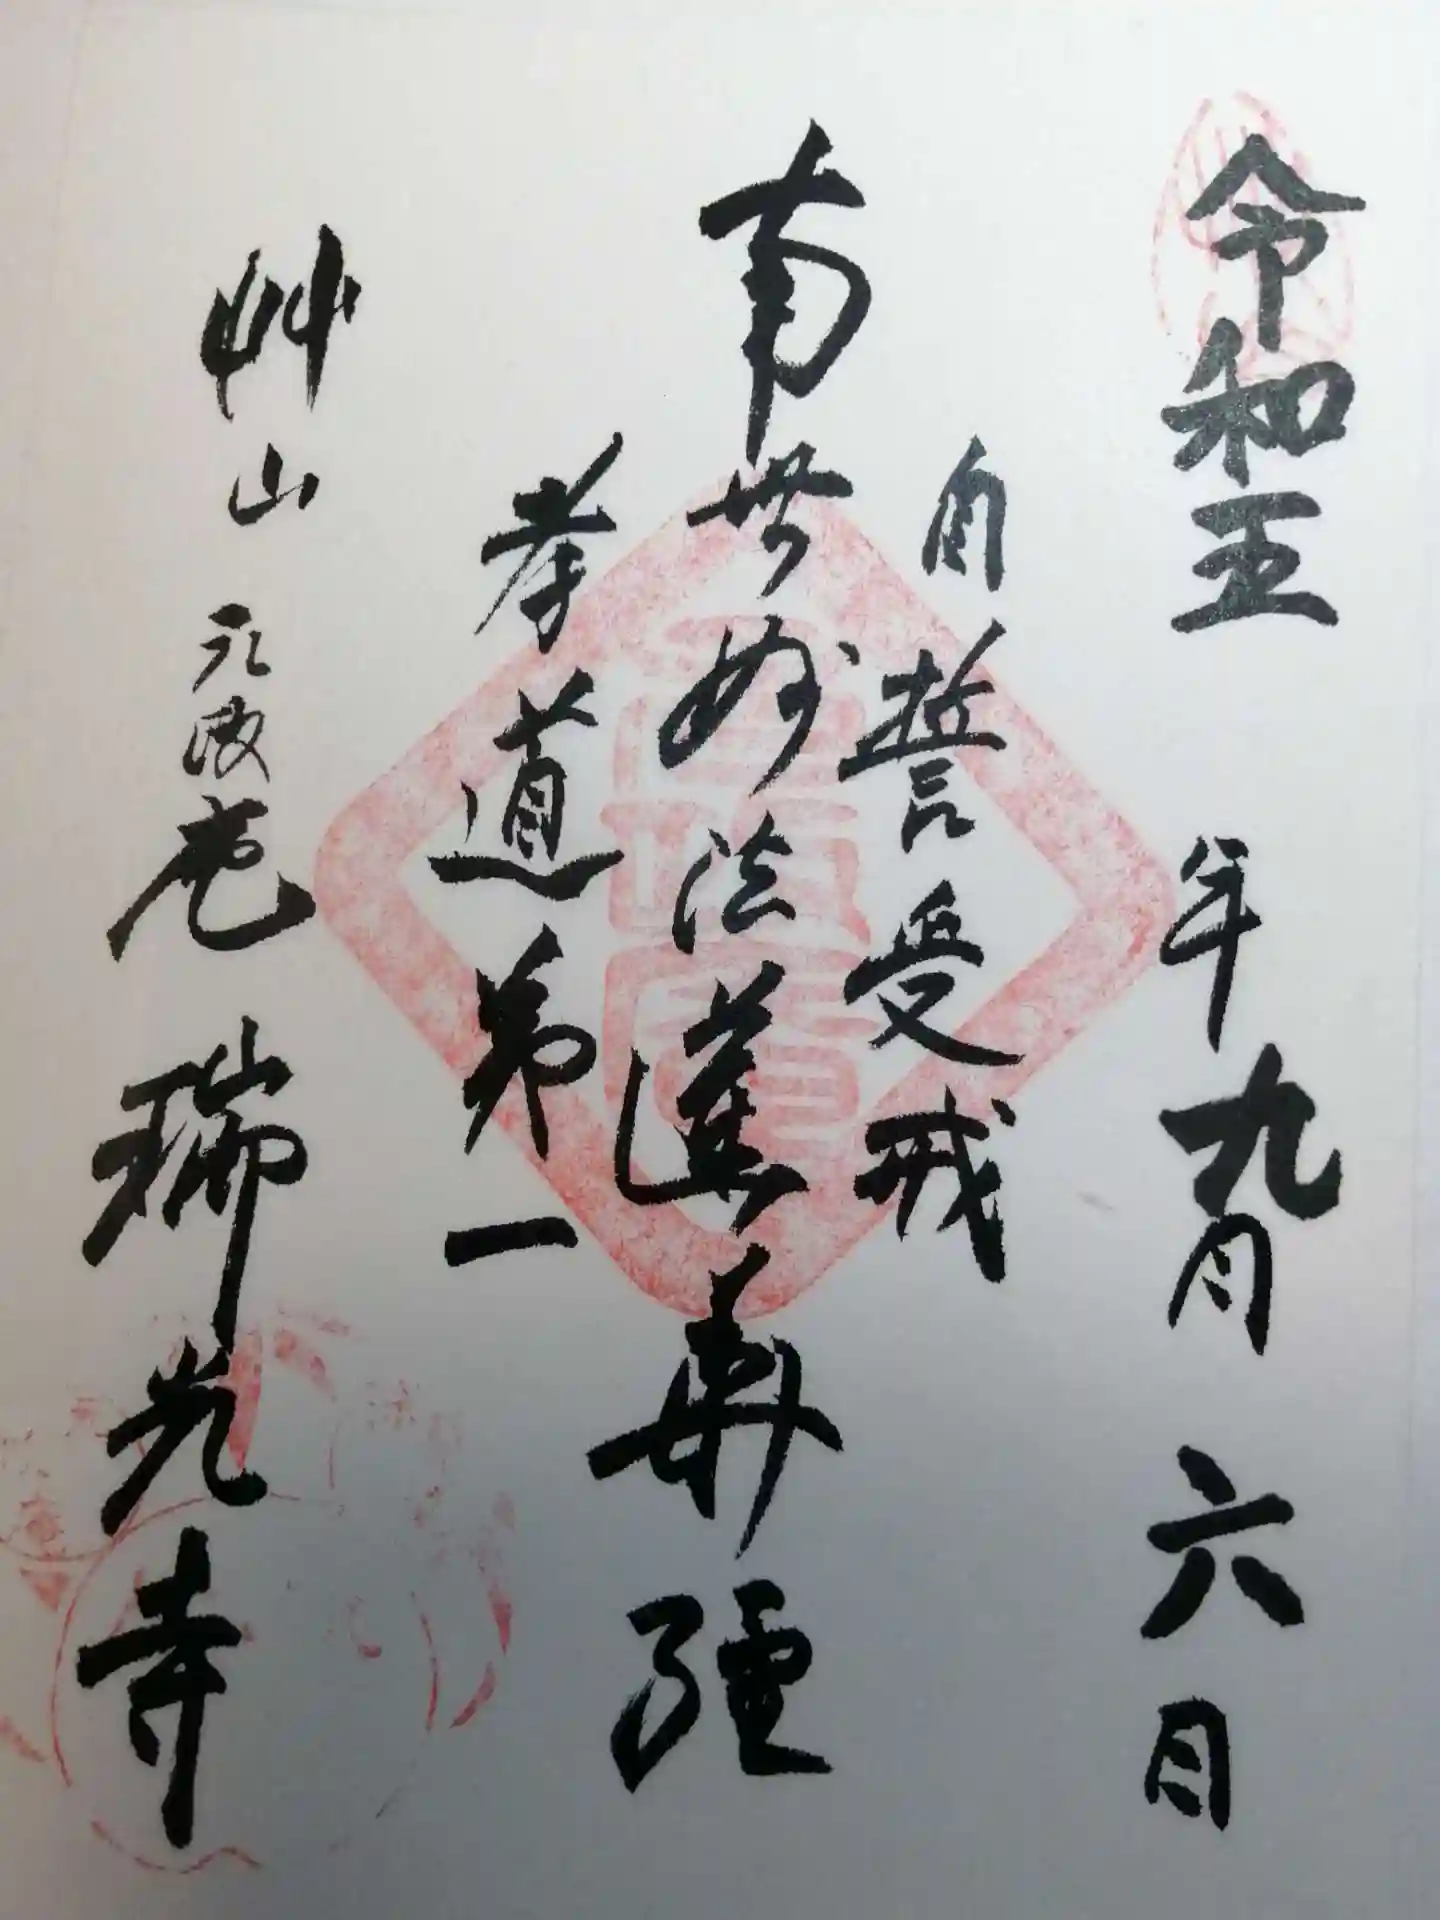 令和五年九月六日
自誓受戒
南無妙法蓮華経
孝道第一
艸山 元政庵 瑞光寺